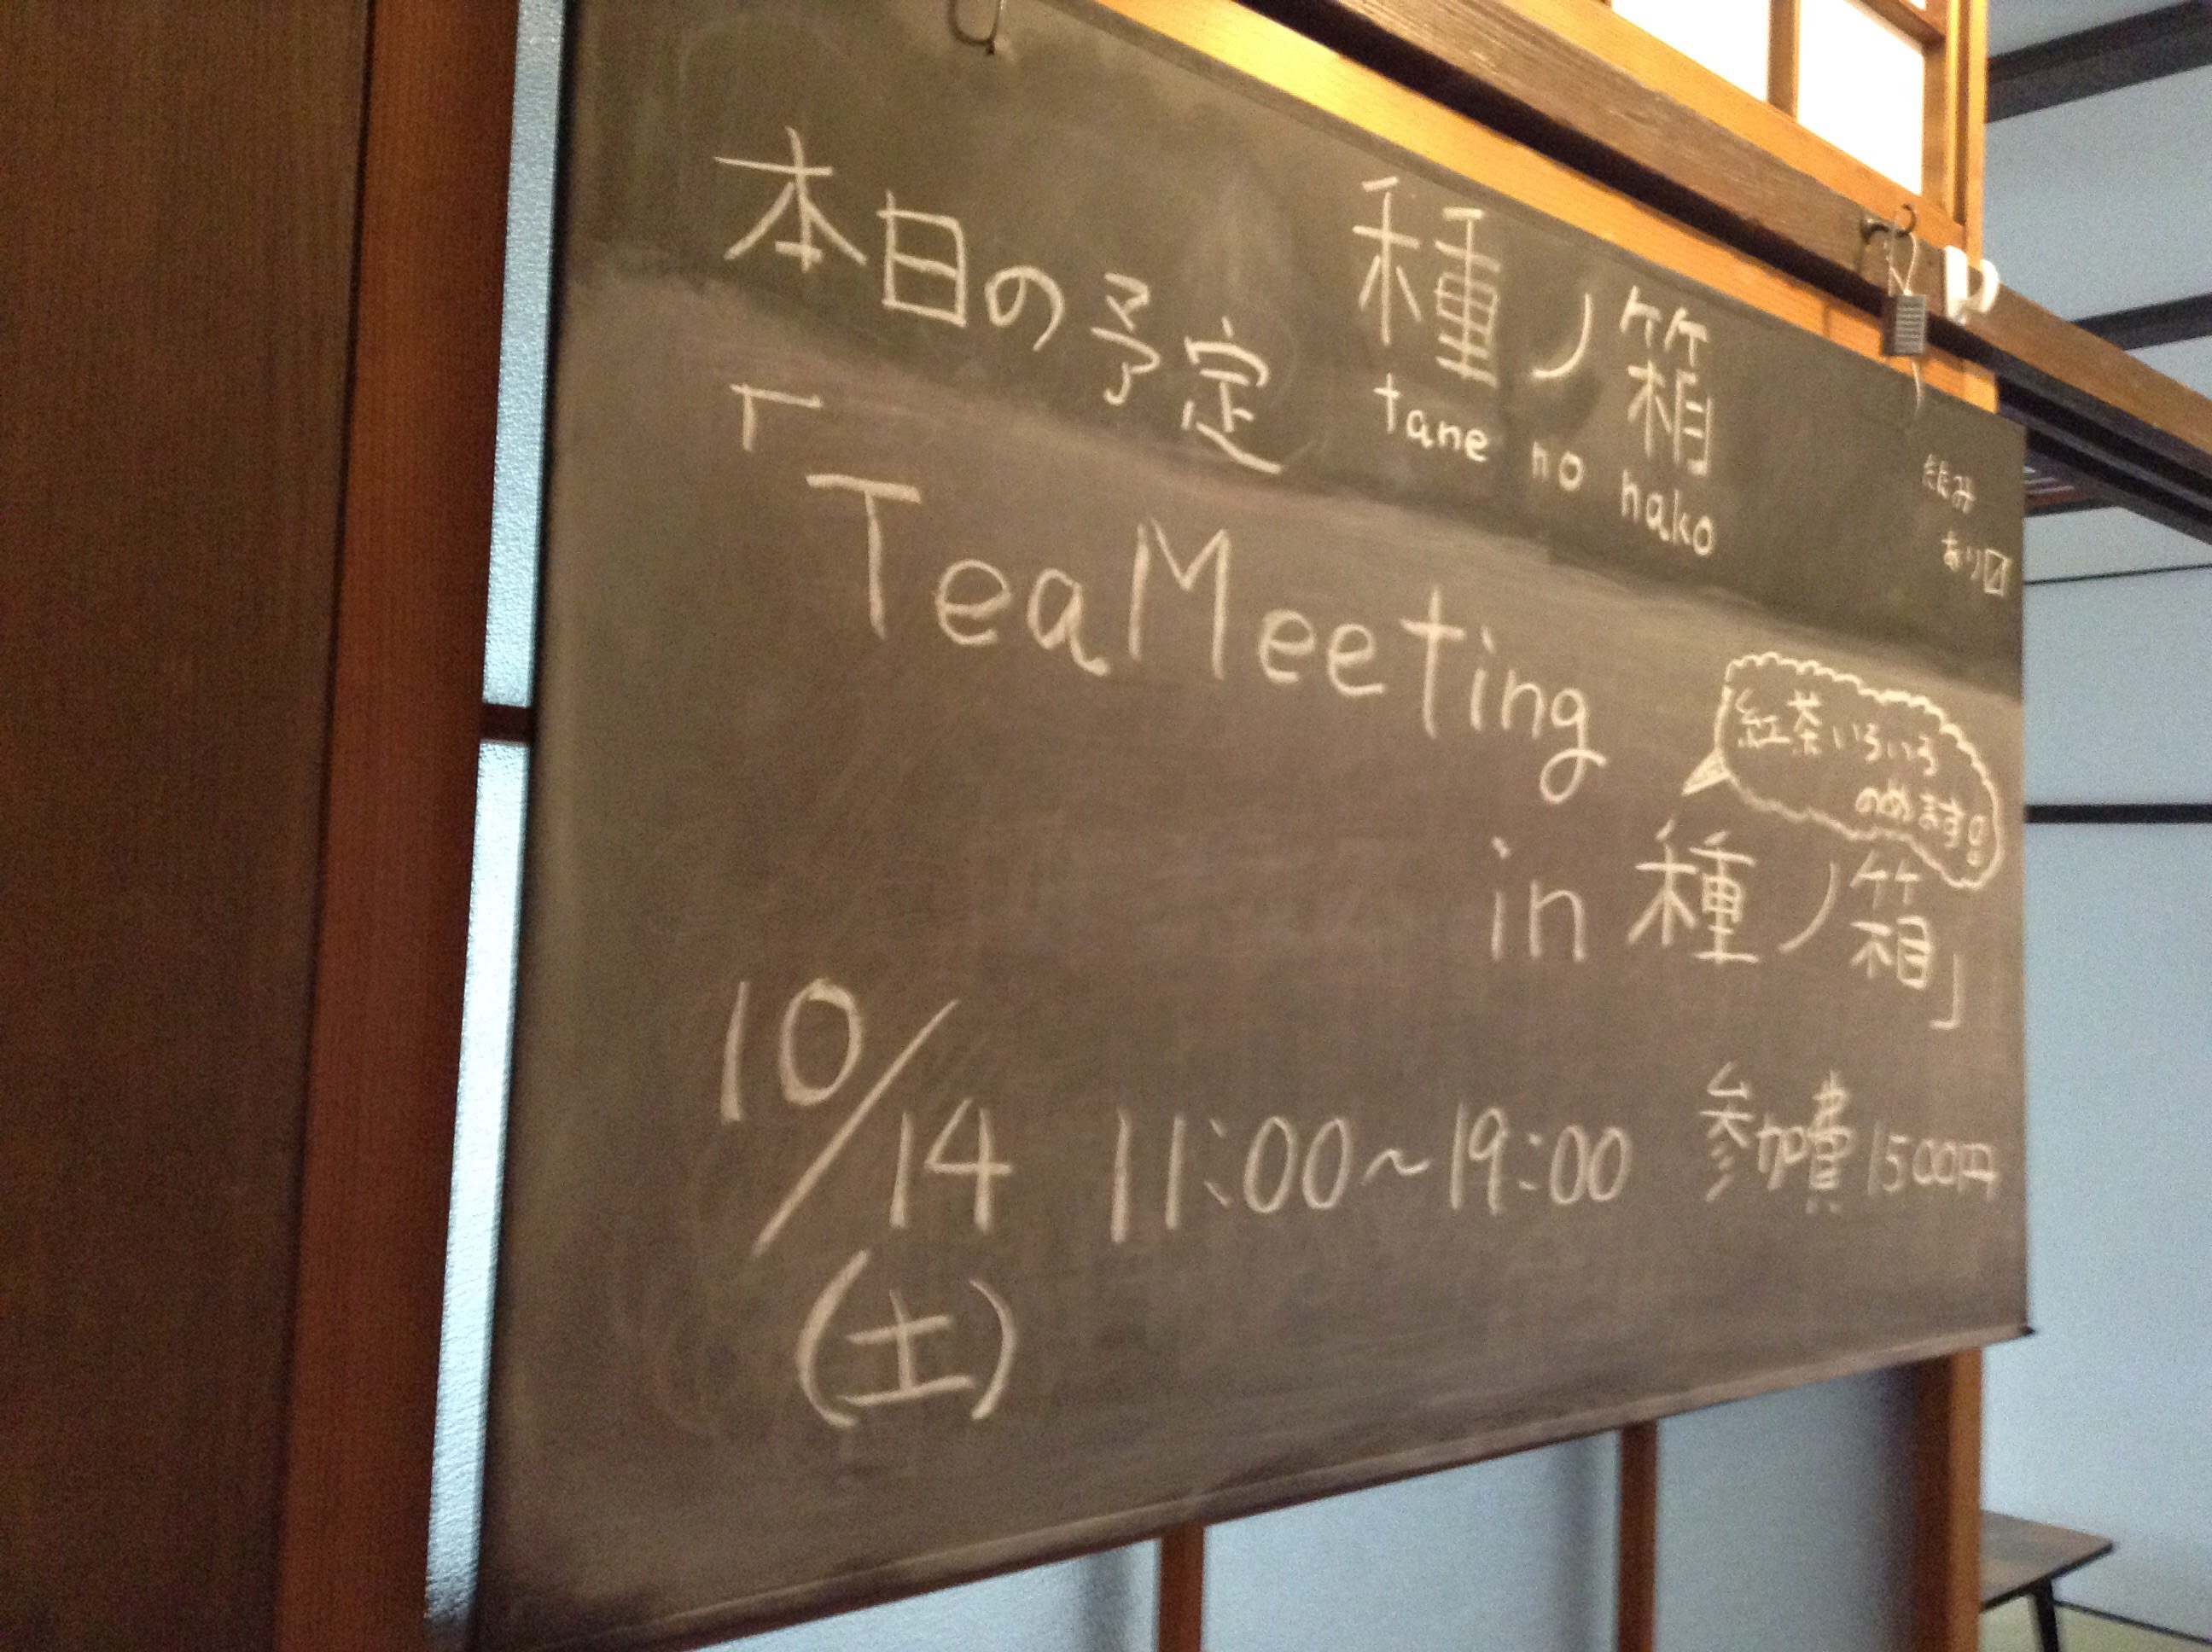 本日の予定
種ノ箱
tane no hako
たたみ
あり☑
「TeaMeeting
紅茶いろいろ
のめます!!
in 種ノ箱」
10/14 11:00~19:00 参加費1500円
(土)